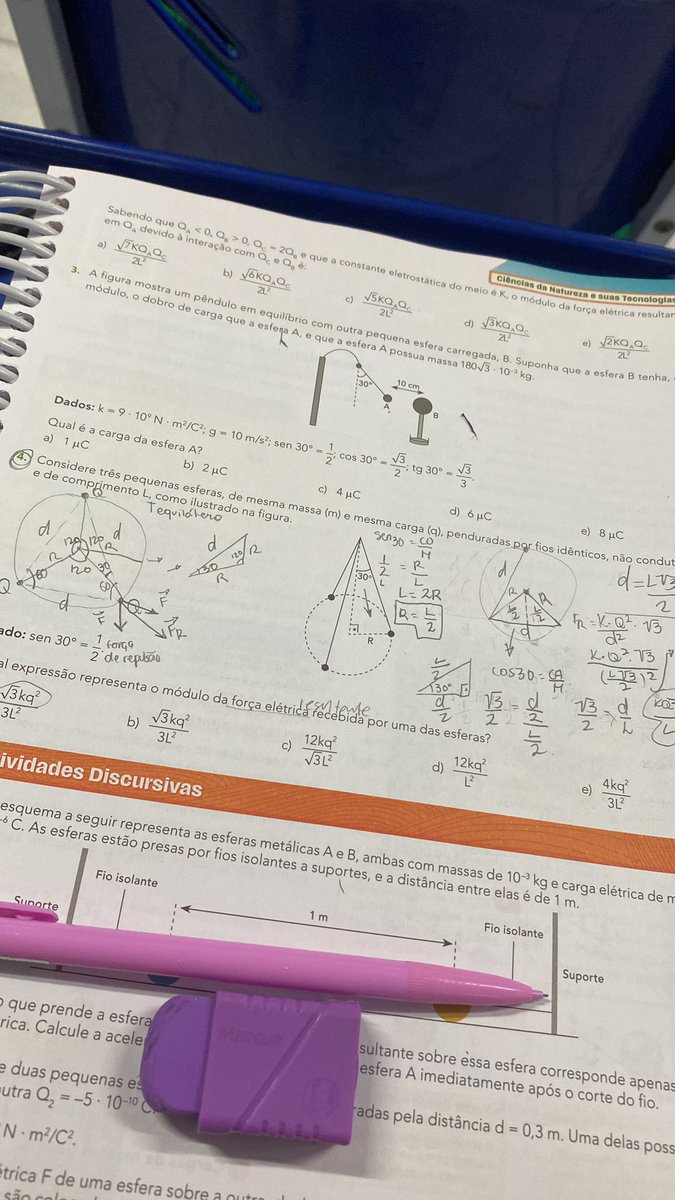 Ciências da Natureza e suas Tecnologias
Sabendo que Q_A < 0, Q_B > 0, Q_C = 2Q_B e que a constante eletrostática do meio é K, o módulo da força elétrica resultan
em Q_A devido à interação com Q_C e Q_B é:
a) √7KQ_AQ_C / 2L²
b) √6KQ_AQ_C / 2L²
c) √5KQ_AQ_C / 2L²
d) √3KQ_AQ_C / 2L²
e) √2KQ_AQ_C / 2L²
3. A figura mostra um pêndulo em equilíbrio com outra pequena esfera carregada, B. Suponha que a esfera B tenha,
módulo, o dobro de carga que a esfera A, e que a esfera A possua massa 180√3 · 10⁻³ kg.
30°
10 cm
A
B
Dados: k = 9 · 10⁹ N · m²/C²; g = 10 m/s²; sen 30° = 1/2; cos 30° = √3/2; tg 30° = √3/3.
Qual é a carga da esfera A?
a) 1 μC
b) 2 μC
c) 4 μC
d) 6 μC
e) 8 μC
4. Considere três pequenas esferas, de mesma massa (m) e mesma carga (q), penduradas por fios idênticos, não condut
e de comprimento L, como ilustrado na figura.
Tequilátero
Q
d
d
120
120
120
R
R
Q
d
Q
F
F
F_R
força
de repulsão
d
120
R
30
R
30°
L
R
sen30 = CO/H
1/2 = R/L
L = 2R
R = L/2
d
R
R
L/2
L/2
d
d = L√3 / 2
F_R = K·Q²·√3 / d²
K·Q²·√3 / (L√3/2)²
L/2
30°
d/2
cos30 = CA/H
√3/2 = d/2 / L/2
√3/2 = d/L
ado: sen 30° = 1/2.
al expressão representa o módulo da força elétrica recebida por uma das esferas?
resultante
√3kq² / 3L²
b) √3kq² / 3L²
c) 12kq² / √3L²
d) 12kq² / L²
e) 4kq² / 3L²
ividades Discursivas
esquema a seguir representa as esferas metálicas A e B, ambas com massas de 10⁻³ kg e carga elétrica de m
⁻⁶ C. As esferas estão presas por fios isolantes a suportes, e a distância entre elas é de 1 m.
Suporte
Fio isolante
1 m
Fio isolante
Suporte
MERCUR
o que prende a esfera
sultante sobre essa esfera corresponde apenas
rica. Calcule a acele
esfera A imediatamente após o corte do fio.
e duas pequenas es
radas pela distância d = 0,3 m. Uma delas poss
utra Q₂ = –5 · 10⁻¹⁰ C
N · m²/C².
étrica F de uma esfera sobre a outra